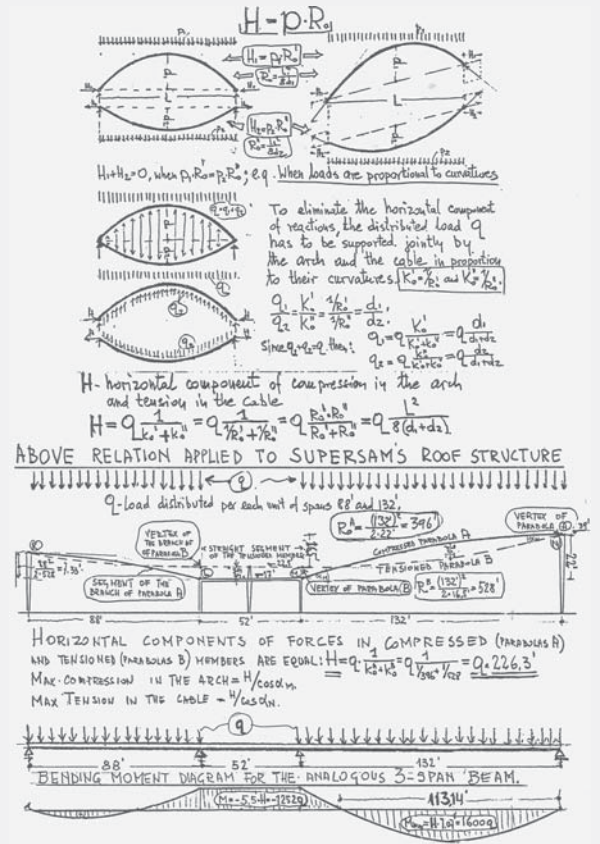 H = p·R₀
p₁
p₂
H₁ = p₁R₀'
R₀' = L²/8d₁
H₁
L
H₂ = p₂R₀"
R₀" = L²/8d₂
p₂
H₁+H₂=0, when p₁·R₀' = p₂·R₀"; e.g. When loads are proportional to curvatures
q = q₁+q₂
To eliminate the horizontal component
of reactions, the distributed load q
has to be supported jointly by
the arch and the cable in proportion
to their curvatures. K₀' = 1/R₀' and K₀" = 1/R₀"
q
q₁
q₂
q₁/q₂ = K₀'/K₀" = (1/R₀')/(1/R₀") = d₁/d₂.
Since q₁+q₂=q then: q₁ = q K₀'/(K₀'+K₀") = q d₁/(d₁+d₂)
q₂ = q K₀"/(K₀'+K₀") = q d₂/(d₁+d₂)
H- horizontal component of compression in the arch
and tension in the cable
H = q 1/(K₀'+K₀") = q 1/(1/R₀'+1/R₀") = q R₀'·R₀"/(R₀'+R₀") = q L²/8(d₁+d₂)
ABOVE RELATION APPLIED TO SUPERSAM'S ROOF STRUCTURE
q
q-Load distributed per each unit of spans 88' and 132'.
R₀ᴬ = (132')²/2·22' = 396'
VERTEX OF PARABOLA Ⓐ
VERTEX OF THE BRANCH OF PARABOLA B
STRAIGHT SEGMENT OF THE TENSIONED MEMBER
COMPRESSED PARABOLA A
TENSIONED PARABOLA B
88²/2·528 = 7.33'
SEGMENT OF THE BRANCH OF PARABOLA A
17'
VERTEX OF PARABOLA Ⓑ
R₀ᴮ = (132')²/2·16.5' = 528'
22'
88'
52'
132'
HORIZONTAL COMPONENTS OF FORCES IN COMPRESSED (PARABOLAS A)
AND TENSIONED (PARABOLAS B) MEMBERS ARE EQUAL: H = q· 1/(K₀'+K₀") = q 1/(1/396+1/528) = q·226.3'
MAX. COMPRESSION IN THE ARCH = H/cosαₘ.
MAX TENSION IN THE CABLE = H/cosαₙ.
q
88'
52'
132'
BENDING MOMENT DIAGRAM FOR THE ANALOGOUS 3-SPAN BEAM.
M = -5.5·H = -1252q
113.14'
Mₘₐₓ = H·7.07' = 1600q